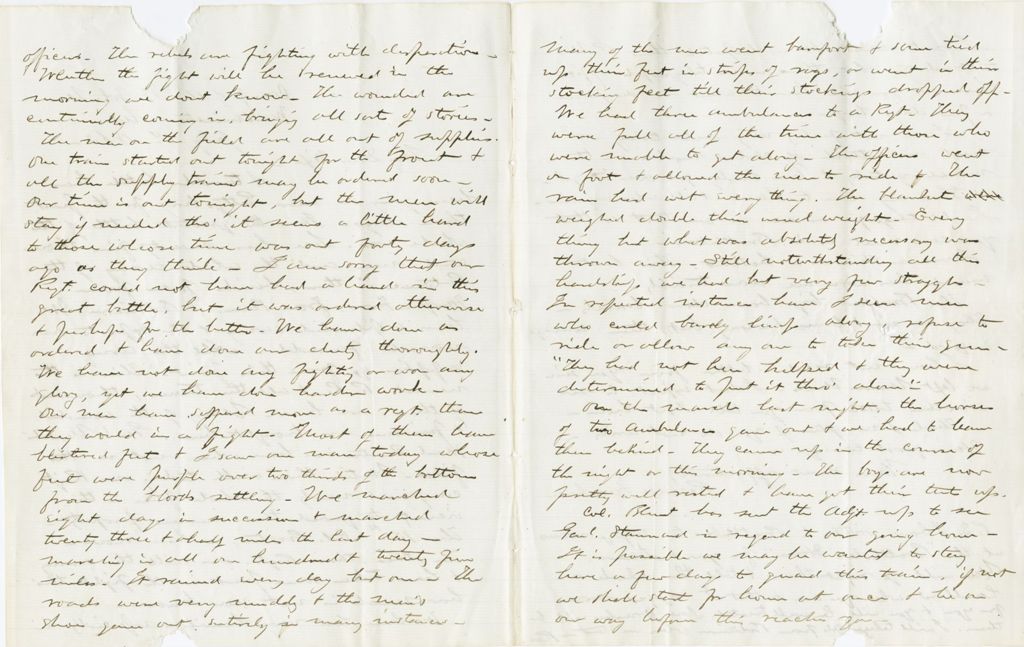 officers. The rebels are fighting with desperation -
Wether the fight will be renewed in the
morning we dont know - The wounded are
continually coming in, bringing all sort of stories -
The men on the field are all out of supplies.
One train started out tonight for the front &
all the supply trains may be ordered soon -
Our time is out tonight, but the men will
stay if needed tho' it seems a little hard
to those whose time was out forty days
ago as they think - I am sorry that our
Regt. could not have had a hand in this
great battle, but it was ordered otherwise
& perhaps for the better - We have done as
ordered & have done our duty thoroughly.
We have not done any fighting or won any
glory, yet we have done harder work -
Our men have suffered more as a regt. than
they would in a fight - Most of them have
blistered feet & I saw one man today whose
feet were purple over two thirds of the bottom
from the blood settling - We marched
eight days in succession & marched
twenty three & a half miles the last day -
marching in all one hundred & twenty five
miles - It rained every day but one - The
roads were very muddy & the men's
shoes gave out entirely in many instances -
Many of the men went barefoot & some tied
up their feet in strips of rags, or went in their
stockin feet till their stockings dropped off -
We had three ambulances to a Regt. They
were full all of the time with those who
were unable to get along - The officers went
on foot & allowed the men to ride & The
rain had wet everything. The blankets
weighed double their usual weight - Every
thing but what was absolutely necessary was
thrown away - Still notwithstanding all this
hardship we had but very few stragglers -
In repeated instances have I seen men
who could barely limp along, refuse to
ride or allow any one to take their gun -
"They had not been helped & they were
determined to put it thro' alone"
On the march last night, the horses
of two ambulances gave out & we had to leave
them behind - They came up in the course of
the night or this morning - The boys are now
pretty well rested & have got their tents up.
Col. Blunt has sent the Adjt up to see
Genl. Stannard in regard to our going home -
It is possible we may be wanted to stay
here a few days to guard this train, if not
we shall start for home at once & be on
our way before this reaches you